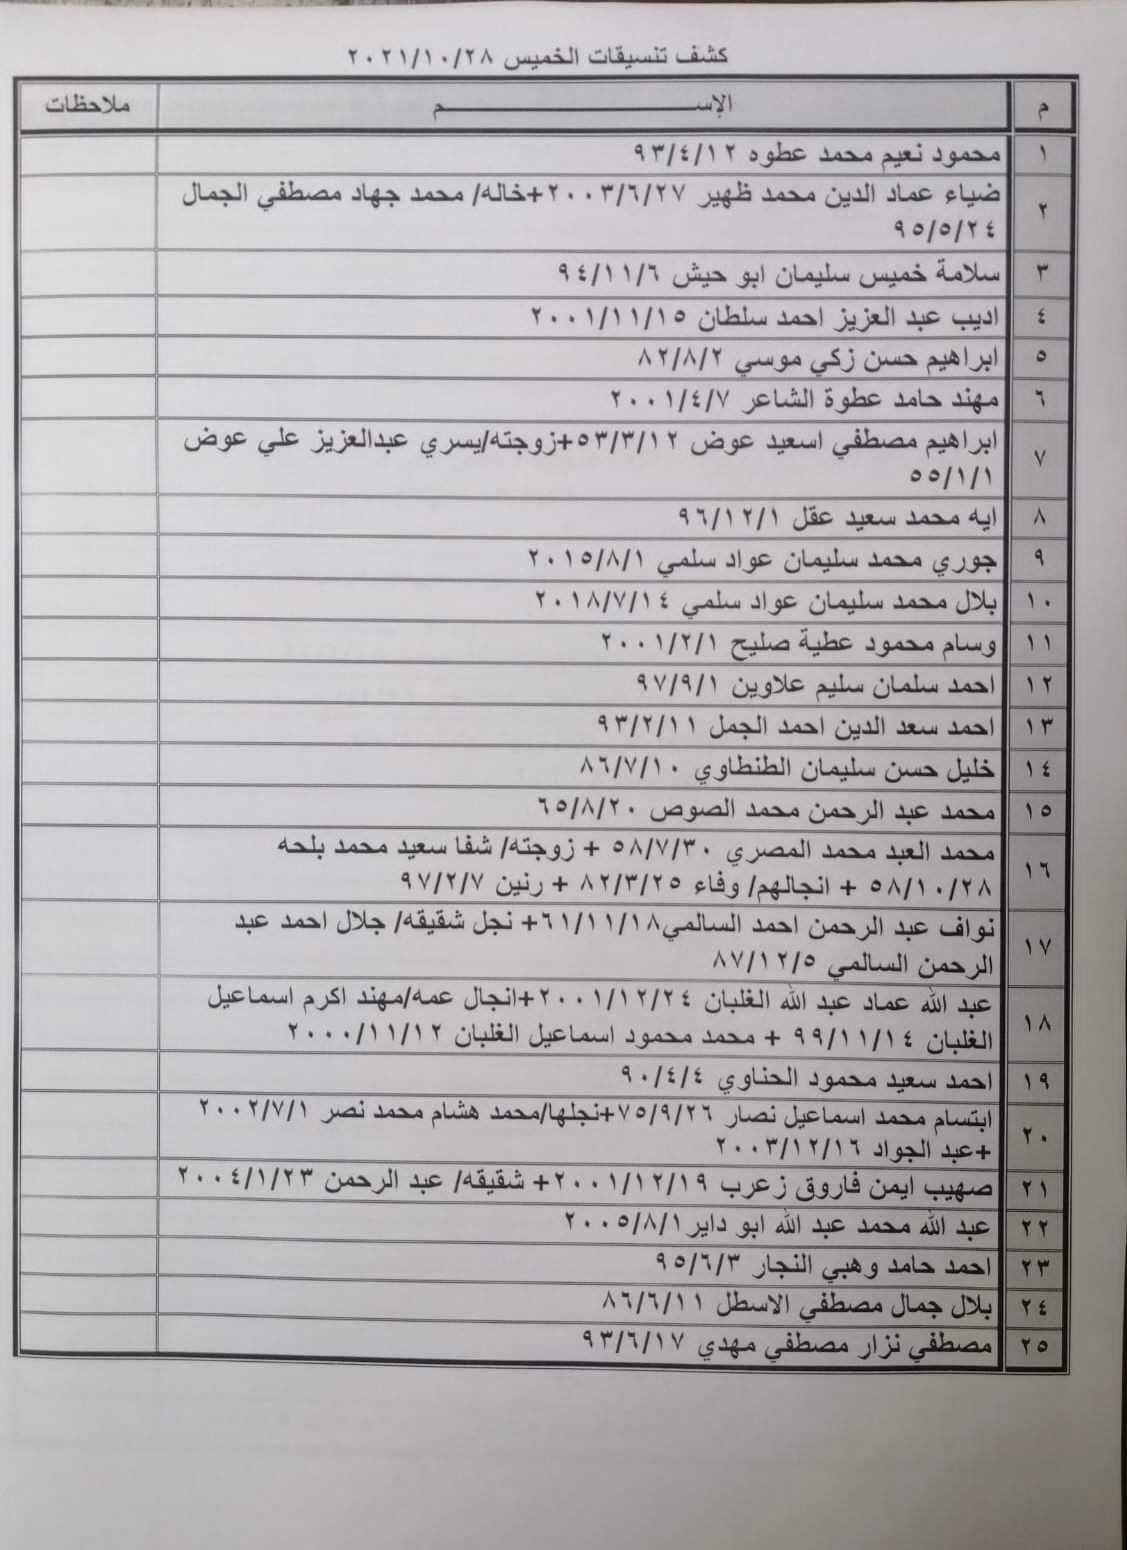 كشف تنسيقات الخميس ٢٠٢١/١٠/٢٨
م الإســـــــــــم ملاحظات
١ محمود نعيم محمد عطوه ٩٣/٤/١٢
٢ ضياء عماد الدين محمد ظهير ٢٠٠٣/٦/٢٧+خاله/ محمد جهاد مصطفي الجمال
٩٥/٥/٢٤
٣ سلامة خميس سليمان ابو حيش ٩٤/١١/٦
٤ اديب عبد العزيز احمد سلطان ٢٠٠١/١١/١٥
٥ ابراهيم حسن زكي موسي ٨٢/٨/٢
٦ مهند حامد عطوة الشاعر ٢٠٠١/٤/٧
٧ ابراهيم مصطفي اسعيد عوض ٥٣/٣/١٢+زوجته/يسري عبدالعزيز علي عوض
٥٥/١/١
٨ ايه محمد سعيد عقل ٩٦/١٢/١
٩ جوري محمد سليمان عواد سلمي ٢٠١٥/٨/١
١٠ بلال محمد سليمان عواد سلمي ٢٠١٨/٧/١٤
١١ وسام محمود عطية صليح ٢٠٠١/٢/١
١٢ احمد سلمان سليم علاوين ٩٧/٩/١
١٣ احمد سعد الدين احمد الجمل ٩٣/٢/١١
١٤ خليل حسن سليمان الطنطاوي ٨٦/٧/١٠
١٥ محمد عبد الرحمن محمد الصوص ٦٥/٨/٢٠
١٦ محمد العبد محمد المصري ٥٨/٧/٣٠ + زوجته/ شفا سعيد محمد بلحه
٥٨/١٠/٢٨ + انجالهم/ وفاء ٨٢/٣/٢٥ + رنين ٩٧/٢/٧
١٧ نواف عبد الرحمن احمد السالمي٦١/١١/١٨+ نجل شقيقه/ جلال احمد عبد
الرحمن السالمي ٨٧/١٢/٥
١٨ عبد الله عماد عبد الله الغلبان ٢٠٠١/١٢/٢٤+انجال عمه/مهند اكرم اسماعيل
الغلبان ٩٩/١١/١٤ + محمد محمود اسماعيل الغلبان ٢٠٠٠/١١/١٢
١٩ احمد سعيد محمود الحناوي ٩٠/٤/٤
٢٠ ابتسام محمد اسماعيل نصار ٧٥/٩/٢٦+نجلها/محمد هشام محمد نصر ٢٠٠٢/٧/١
+عبد الجواد ٢٠٠٣/١٢/١٦
٢١ صهيب ايمن فاروق زعرب ٢٠٠١/١٢/١٩+ شقيقه/ عبد الرحمن ٢٠٠٤/١/٢٣
٢٢ عبد الله محمد عبد الله ابو داير ٢٠٠٥/٨/١
٢٣ احمد حامد وهبي النجار ٩٥/٦/٣
٢٤ بلال جمال مصطفي الاسطل ٨٦/٦/١١
٢٥ مصطفي نزار مصطفي مهدي ٩٣/٦/١٧